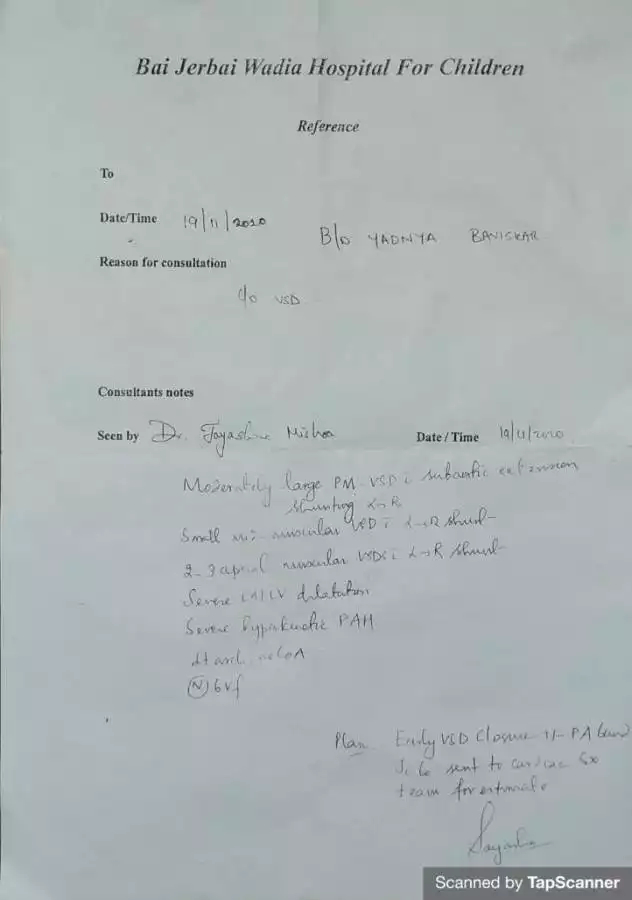 Bai Jerbai Wadia Hospital For Children
Reference
To
Date/Time 19/11/2020
B/o YADNYA BAVISKAR
Reason for consultation
c/o VSD
Consultants notes
Seen by Dr. Jayashree Mishra Date / Time 19/11/2020
Moderately large PM VSD c subaortic extension
shunting L→R
Small mid muscular VSD c L→R shunt
2-3 apical muscular VSDs c L→R shunt
Severe LA/LV dilatation
Severe hyperkinetic PAH
Lt arch no CoA
(N) BVf
Plan Early VSD Closure +/- PA band
To be sent to cardiac Sx
team for estimate
Scanned by TapScanner